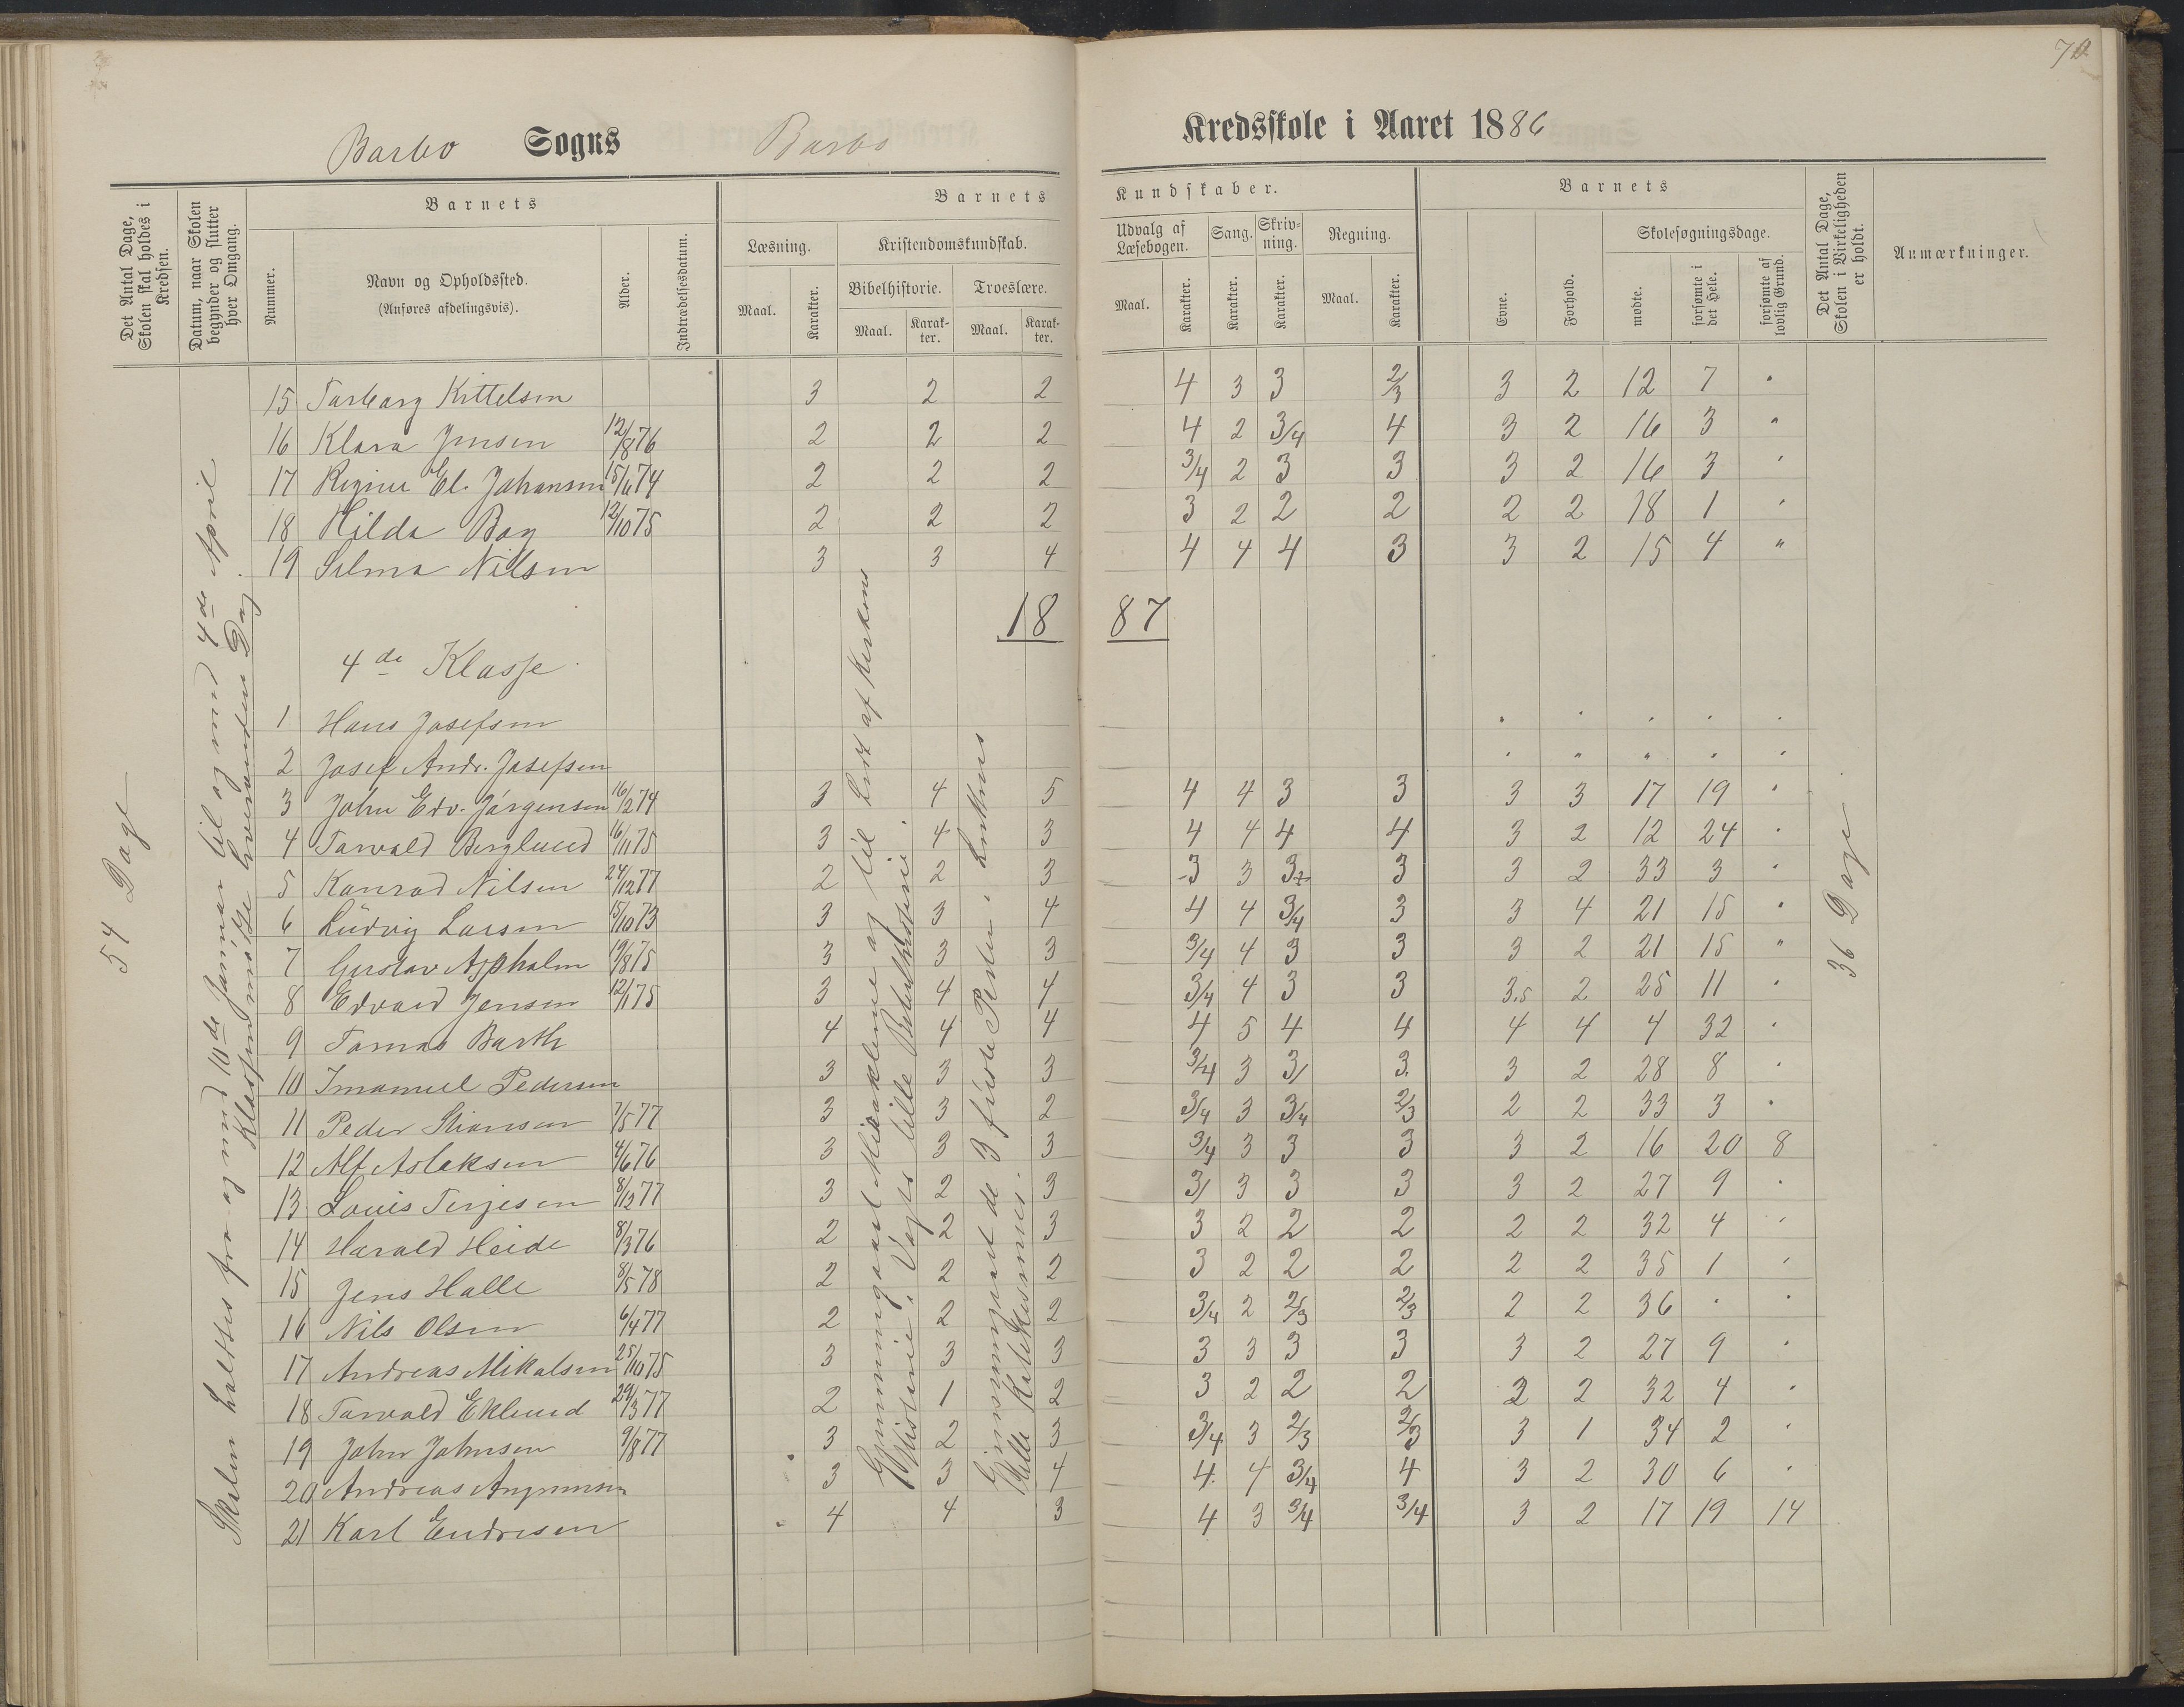 70
Barbo Sogns Barbo Kredsskole i Aaret 1886
Det Antal Dage, Skolen skal holdes i Kredsen.
Datum, naar Skolen begynder og slutter hver Omgang.
Barnets
Nummer.
Navn og Opholdssted.
(Anføres afdelingsvis).
Alder.
Indtrædelsesdatum.
Barnets Kundskaber.
Læsning.
Maal. Karakter.
Kristendomskundskab.
Bibelhistorie. Troeslære.
Maal. Karakter. Maal. Karakter.
Udvalg af Læsebogen. Sang. Skrivning. Regning.
Maal. Karakter. Karakter. Karakter. Maal. Karakter.
Barnets
Evne. Forhold.
Skolesøgningsdage.
mødte. forsømte i det Hele. forsømte af lovlig Grund.
Det Antal Dage, Skolen i Virkeligheden er holdt.
Anmærkninger.
15 Torborg Kittelsen 3 2 2 4 3 3 2/3 3 2 12 7 "
16 Klara Jensen 12/8 76 2 2 2 4 2 3/4 4 3 2 16 3 "
17 Regine El. Johansen 15/6 74 2 2 2 3/4 2 3 3 3 2 16 3 "
18 Hilda Boy 12/10 75 2 2 2 3 2 2 2 2 2 18 1 "
19 Selma Nilsen 3 3 4 4 4 4 3 3 2 15 4 "
1887
4de Klasse
1 Hans Josefsen " " " " "
2 Josef Andr. Josefsen " " " " "
3 John Edv. Jørgensen 16/2 74 3 4 5 4 4 3 3 3 3 17 19 "
4 Torvald Berglund 16/11 75 3 4 3 4 4 4 4 3 2 12 24 "
5 Konrad Nilsen 24/12 77 2 2 3 3 3 3 3 3 2 33 3 "
6 Ludvig Larsen 15/10 73 3 3 4 4 4 3/4 3 3 4 21 15 "
7 Gustav Aspholm 19/8 75 3 3 3 3/4 4 3 3 3 2 21 15 "
8 Edvard Jensen 12/1 75 3 4 4 3/4 4 3 3 3.5 2 25 11 "
9 Tomas Barth 4 4 4 4 5 4 4 4 4 4 32 "
10 Imanuel Pedersen 3 3 3 3/4 3 3/ 3. 3 2 28 8 "
11 Peder Stiansen 7/5 77 3 3 2 3/4 3 3/4 2/3 2 2 33 3 "
12 Alf Aslaksen 4/6 76 3 3 3 3/4 3 3 3 3 2 16 20 8
13 Louis Terjesen 8/12 77 3 2 3 3/ 3 3 3 3 2 27 9 "
14 Harald Heide 8/3 76 2 2 3 3 2 2 2 2 2 32 4 "
15 Jens Halle 8/5 78 2 2 2 3 2 2 2 2 2 35 1 "
16 Nils Olsen 6/4 77 2 2 2 3/4 2 2/3 2/3 2 2 36 " "
17 Andreas Mikalsen 25/10 75 3 3 3 3 3 3 3 3 2 27 9 "
18 Torvald Eklund 29/3 77 2 1 2 3 2 2 2 2 2 32 4 "
19 John Johnsen 9/8 77 3 2 3 3/4 3 2/3 2/3 3 1 34 2 "
20 Andreas 3 3 4 4. 4 3/4 4 3 2 30 6 "
21 Karl Endresen 4 4 3 4 3 3/4 3/4 3 2 17 19 14
54 Dage
Skolen holdtes fra og med 10de Januar til og med 4de April
Klassen mødte hverandren Dag.
Gjennemgaaet Miraklerne og til Endt af Kirkens
Historie i Vogts lille Bibelhistorie.
Gjennemgaaet de 3 første Parter i Luthers
lille Katekismus.
36 Dage